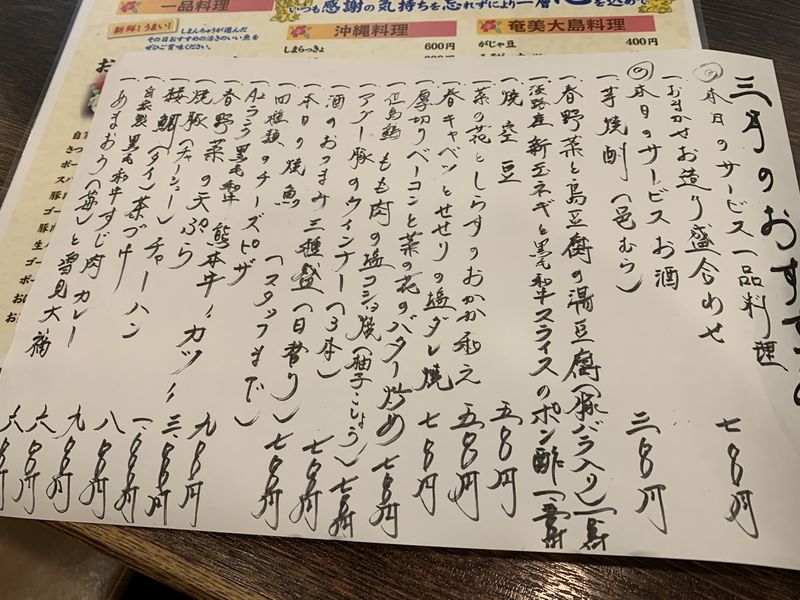 一品料理
新鮮!うまい!
しまんちゅうが選んだ
その日おすすめの活きのいい魚を
ぜひご賞味ください。
いつも感謝の気持ちを忘れずにより一層
を込めて
沖縄料理
しまらっきょ 600円
奄美大島料理
がじゃ豆 400円
三月のおすすめ
本日のサービス一品料理 七〇〇円
一おまかせお造り盛合わせ
本日のサービスお酒
一芋焼酎(邑むら) 三〇〇円
一春野菜と島豆腐の湯豆腐(豚バラ入り)
一淡路産新玉ネギと黒毛和牛スライスのポン酢
一焼空豆 五〇〇円
一菜の花としらすのおかか和え 五〇〇円
一春キャベツとせせりの塩ダレ焼 七〇〇円
一厚切りベーコンと菜の花のバター炒め 七〇〇円
一但馬鶏もも肉の塩コショウ焼(柚子こしょう) 七〇〇円
一アグー豚のウィンナー(3本) 七〇〇円
一酒のおつまみ三種盛(日替り) 七〇〇円
一本日の焼魚(スタッフまで)
一四種類のチーズピザ 九〇〇円
一A2ランク黒毛和牛 熊本牛カツ
一春野菜の天ぷら
一焼豚(チャーシュー)チャーハン
一桜鯛(タイ)茶づけ
一自家製黒毛和牛すじ肉カレー
一あまおう(苺)と雪見大福